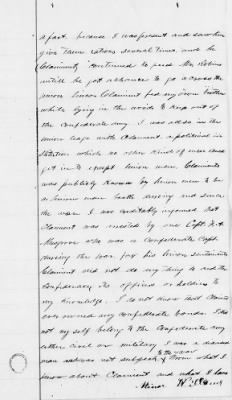 a fact. because I was present and saw him
give them rations several times, and he
(Claimant) continued to feed Mr
untill he got a chance to go across the
Union lines Claimant fed my own brother
while lying in the woods to keep out of
the Confederate army. I was also in the
Union Leage with Claimant a political in-
stitution which no other kind of men could
get in to except Union men, Claimant
was publicly known by Union men to be
a Union man both during and since
the war. I am creditably informed that
Claimant was arrested by one Capt.
Musgrove who was a Confederate Capt.
during the war for his Union sentiments
Claimant did not do any thing to aid the
Confederacy its officers or soldiers to
my knowledge. I do not know that Claimant
ever owned any Confederate bonds. I did
not my self belong to the Confederate army
either civil or military I was a
man and was not subject to the war from what I
know about Claimant and what I have